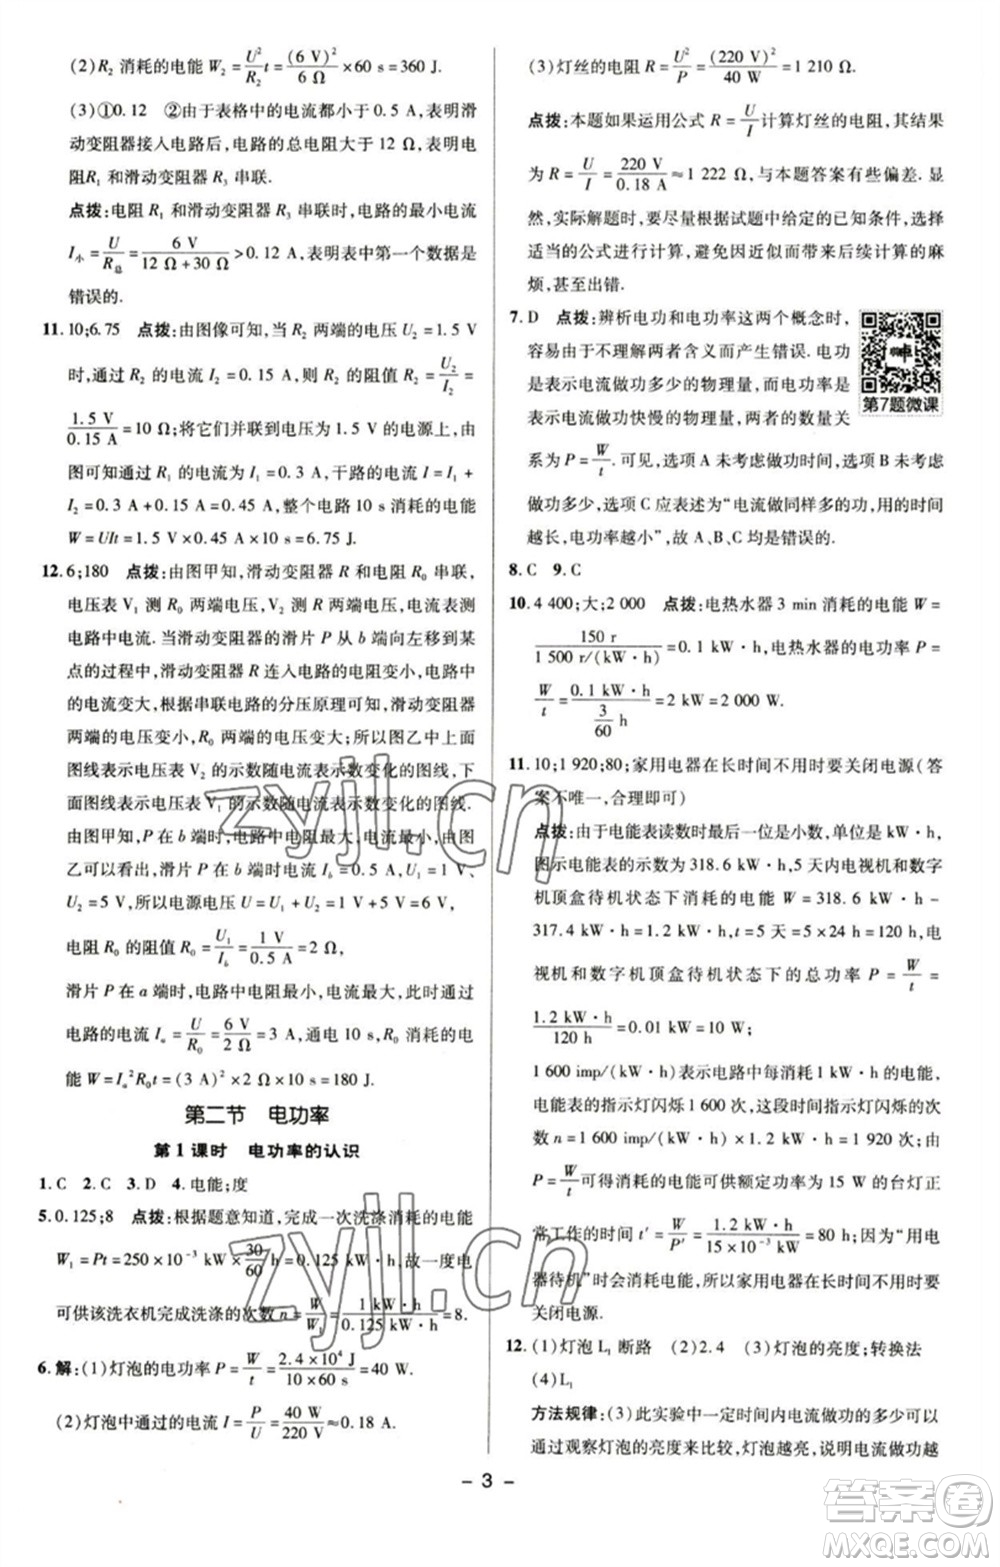 (2)R₂ 消耗的电能 W₂=U²/R₂ t=(6 V)²/6 Ω×60 s=360 J.
(3)①0.12 ②由于表格中的电流都小于 0.5 A,表明滑
动变阻器接入电路后,电路的总电阻大于 12 Ω,表明电
阻R₁ 和滑动变阻器 R₃ 串联.
点拨:电阻 R₁ 和滑动变阻器 R₃ 串联时,电路的最小电流
I小=U/R总=6 V/(12 Ω+30 Ω)>0.12 A,表格中第一个数据是
错误的.
11. 10;6.75 点拨:由图像可知,当 R₂ 两端的电压 U₂=1.5 V
时,通过 R₂ 的电流 I₂=0.15 A,则 R₂ 的阻值 R₂=U₂/I₂=
1.5 V/0.15 A=10 Ω;将它们并联到电压为 1.5 V 的电源上,由
图可知通过 R₁ 的电流为 I₁=0.3 A,干路的电流 I=I₁+
I₂=0.3 A+0.15 A=0.45 A,整个电路 10 s 消耗的电能
W=UIt=1.5 V×0.45 A×10 s=6.75 J.
12. 6;180 点拨:由图甲知,滑动变阻器 R 和电阻 R₀ 串联,
电压表 V₁ 测 R₀ 两端电压,V₂ 测 R 两端电压,电流表测
电路中电流.当滑动变阻器的滑片 P 从 b 端向左移动到某
点的过程中,滑动变阻器 R 连入电路的电阻变小,电路中
的电流变大,根据串联电路的分压原理可知,滑动变阻器
两端的电压变小,R₀ 两端的电压变大;所以图乙中上面
图线表示电压表 V₂ 的示数随电流表示数变化的图线,下面
图线表示电压表 V₁ 的示数随电流表示数变化的图线.
由图甲知,P 在 b 端时,电路中电阻最大,电流最小,由图
乙可以看出,此时电流 I_b=0.5 A,电压 U₁=1 V,
U₂=5 V,所以电源电压 U=U₁+U₂=1 V+5 V=6 V;
电阻 R₀ 的阻值 R₀=U₁/I_b=1 V/0.5 A=2 Ω,
滑片 P 在 a 端时,电路中电阻最小,电流最大,此时通过
电路的电流 I_a=U/R₀=6 V/2 Ω=3 A,通电 10 s,R₀ 消耗的电
能 W=I_a²R₀t=(3 A)²×2 Ω×10 s=180 J.
第二节 电功率
第 1 课时 电功率的认识
1. C 2. C 3. D 4. 电能;度
5. 0.125;8 点拨:根据题意知道,完成一次洗涤消耗的电能
W₁=Pt=250×10⁻³ kW×30/60 h=0.125 kW·h,故一度电
可供该洗衣机完成洗涤的次数 n=W/W₁=1 kW·h/0.125 kW·h=8.
6. 解:(1)灯泡的电功率 P=W/t=2.4×10⁴ J/10×60 s=40 W.
(2)灯泡中通过的电流 I=P/U=40 W/220 V≈0.18 A.
(3)灯丝的电阻 R=U²/P=(220 V)²/40 W=1 210 Ω.
点拨:本题如果运用公式 R=U/I计算灯丝的电阻,其结果
为 R=U/I=220 V/0.18 A≈1 222 Ω,与本题答案有些偏差.显
然,实际解题时要尽量根据试题中给定的已知条件,选择
适当的公式进行计算,避免因近似而导致后续计算的麻
烦,甚至出错.
7. D 点拨:辨析电功和电功率这两个概念时,
容易由于不理解两者含义而产生错误.电功
是表示电流做功多少的物理量,而电功率是
表示电流做功快慢的物理量,两者的数量关
第7题微课
系为 P=W/t.可见,选项 A 未考虑做功时间,选项 B 未考虑
做功多少,选项 C 应表述为“电流做同样多的功,用的时间
越长,电功率越小”,故 A、B、C 均是错误的.
8. C 9. C
10. 4 400;大;2 000 点拨:电热水器 3 min 消耗的电能 W=
150 r/1 500 r/(kW·h)=0.1 kW·h,电热水器的电功率 P=
W/t=0.1 kW·h/(3/60 h)=2 kW=2 000 W.
11. 10;1 920;80;家用电器在长时间不用时要关闭电源(答
案不唯一,合理即可)
点拨:由于电能表读数时最后一位是小数,单位是 kW·h,
图示电能表的示数为 318.6 kW·h,5 天内电视机和数字
机顶盒待机状态下消耗的电能 W=318.6 kW·h-
317.4 kW·h=1.2 kW·h,t=5 天=5×24 h=120 h,电
视机和数字机顶盒待机状态下的总功率 P=W/t=
1.2 kW·h/120 h=0.01 kW=10 W;
1 600 imp/(kW·h)表示电路中每消耗 1 kW·h 的电能,
电能表的指示灯闪烁 1 600 次,这段时间指示灯闪烁的次
数 n=1 600 imp/(kW·h)×1.2 kW·h=1 920 次;由
P=W/t可得,消耗的电能可供额定功率为 15 W 的台灯正
常工作的时间 t′=W/P′=1.2 kW·h/15×10⁻³ kW=80 h;因为“用电
器待机”时会消耗电能,所以家用电器在长时间不用时要
关闭电源.
12. (1)灯泡 L₁ 断路 (2)2.4 (3)灯泡的亮度;转换法
(4)L₁
方法规律:(3)此实验中一定时间内电流做功的多少可以
通过观察灯泡的亮度来比较,灯泡越亮,说明电流做功越
- 3 -
zyjl.cn
zyjl.cn
答案圈
MXQE.COM